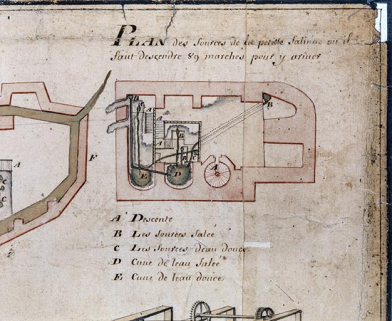 PLAN des Sources de la petitte Saline ou il
faut descendre 89 marches pour y ariver
A Descente
B Les Sources Salée
C Les Sources d'eau douce
D Cuue de leau Salée
E Cuue de leau douce
A
F
B
E
D
A
B